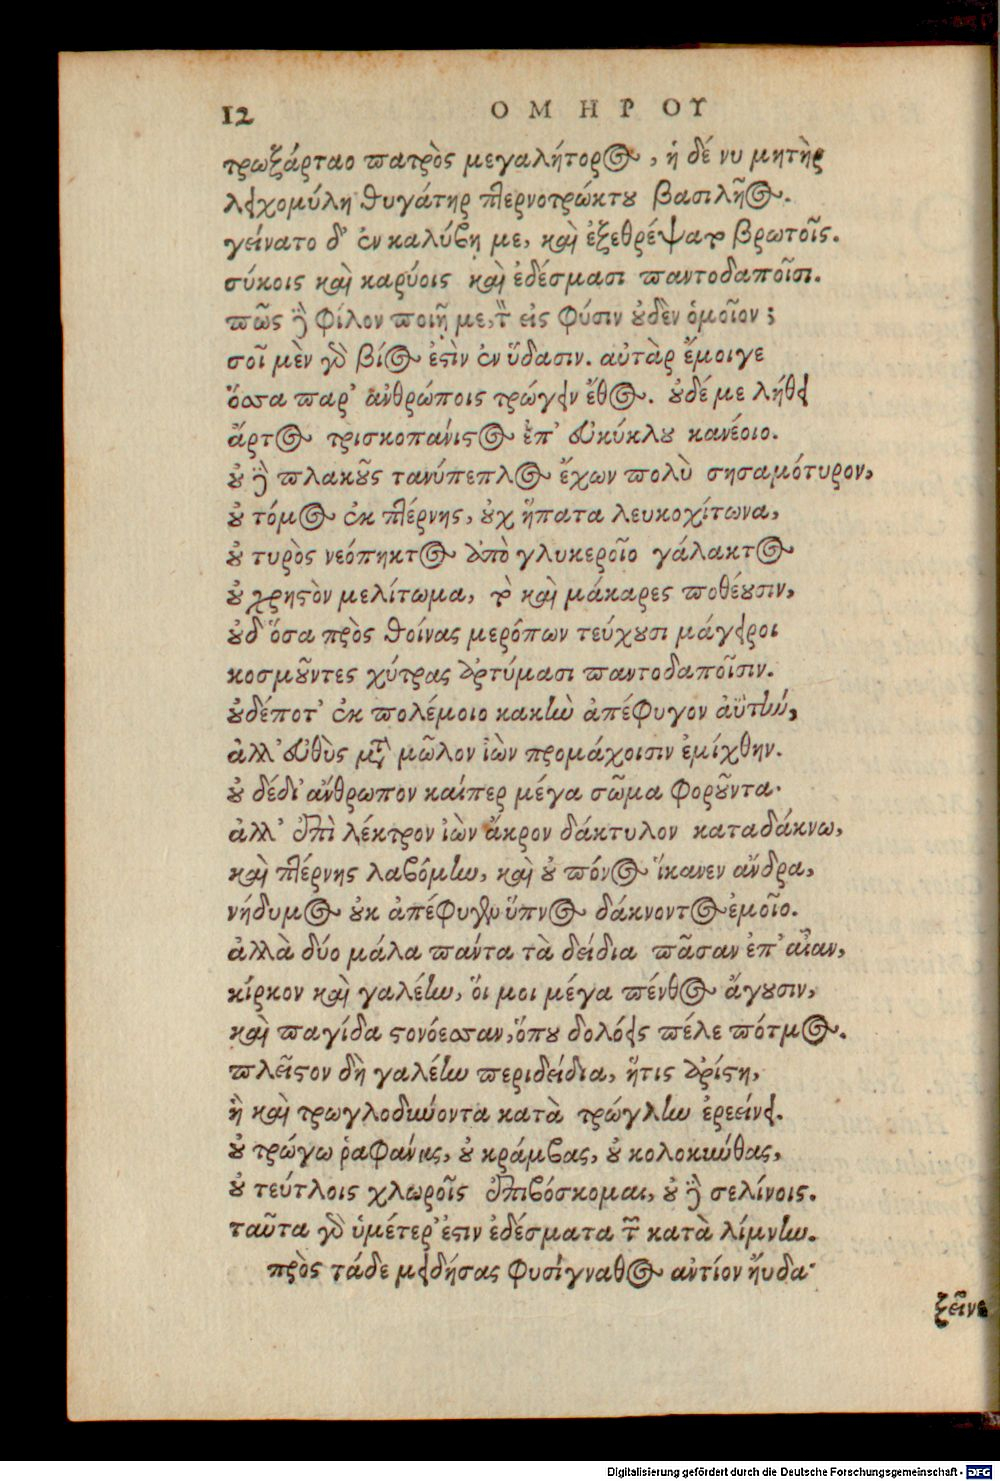 12 ΟΜΗΡΟΥ
τρωξάρταο πατρὸς μεγαλήτορος, ἡ δέ νυ μητὴρ
λειχομύλη θυγάτηρ πτερνοτρώκτου βασιλῆος.
γείνατο δ' ἐν καλύβῃ με, καὶ ἐξεθρέψατο βρωτοῖς.
σύκοις καὶ καρύοις καὶ ἐδέσμασι παντοδαποῖσι.
πῶς δὲ φίλον ποιῇ με, τὸν εἰς φύσιν οὐδὲν ὁμοῖον;
σοῖ μὲν γὸ βίος ἐστὶν ἐν ὕδασιν. αὐτὰρ ἔμοιγε
ὅσσα παρ' ἀνθρώποις τρώγειν ἔθος. οὐδέ με λήθει
ἄρτος τρισκοπάνιστος ἐπ' εὐκύκλου κανέοιο.
οὐ δὲ πλακοῦς τανύπεπλος ἔχων πολὺ σησαμότυρον,
οὐ τόμος ἐκ πτέρνης, οὐχ ἥπατα λευκοχίτωνα,
οὐ τυρὸς νεόπηκτος ἀπὸ γλυκεροῖο γάλακτος
οὐ χρηστὸν μελίτωμα, τὸ καὶ μάκαρες ποθέουσιν,
οὐδ' ὅσα πρὸς θοίνας μερόπων τεύχουσι μάγειροι
κοσμοῦντες χύτρας ἀρτύμασι παντοδαποῖσιν.
οὐδέποτ' ἐκ πολέμοιο κακὴν ἀπέφυγον ἀϋτὴν,
ἀλλ' εὐθὺς μετὰ μῶλον ἰὼν προμάχοισιν ἐμίχθην.
οὐ δέδι' ἄνθρωπον καίπερ μέγα σῶμα φοροῦντα.
ἀλλ' ἐπὶ λέκτρον ἰὼν ἄκρον δάκτυλον καταδάκνω,
καὶ πτέρνης λαβόμην, καὶ οὐ πόνος ἵκανεν ἄνδρα,
νήδυμος οὐκ ἀπέφυγεν ὕπνος δάκνοντος ἐμοῖο.
ἀλλὰ δύο μάλα πάντα τὰ δείδια πᾶσαν ἐπ' αἶαν,
κίρκον καὶ γαλέην, ὅι μοι μέγα πένθος ἄγουσιν,
καὶ παγίδα στονόεσσαν, ὅπου δολόεις πέλε πότμος.
πλεῖστον δὴ γαλέην περιδείδια, ἥτις ἀρίστη,
ἣ καὶ τρωγλοδύνοντα κατὰ τρώγλην ἐρεείνει.
οὐ τρώγω ῥαφάνας, οὐ κράμβας, οὐ κολοκύνθας,
οὐ τεύτλοις χλωροῖς ἐπιβόσκομαι, οὐ δὲ σελίνοις.
ταῦτα γὸ ὑμέτερ' ἐστιν ἐδέσματα τῶν κατὰ λίμνην.
πρὸς τάδε μειδήσας φυσίγναθος ἀντίον ἤυδα·
ξεῖνε
Digitalisierung gefördert durch die Deutsche Forschungsgemeinschaft - DFG